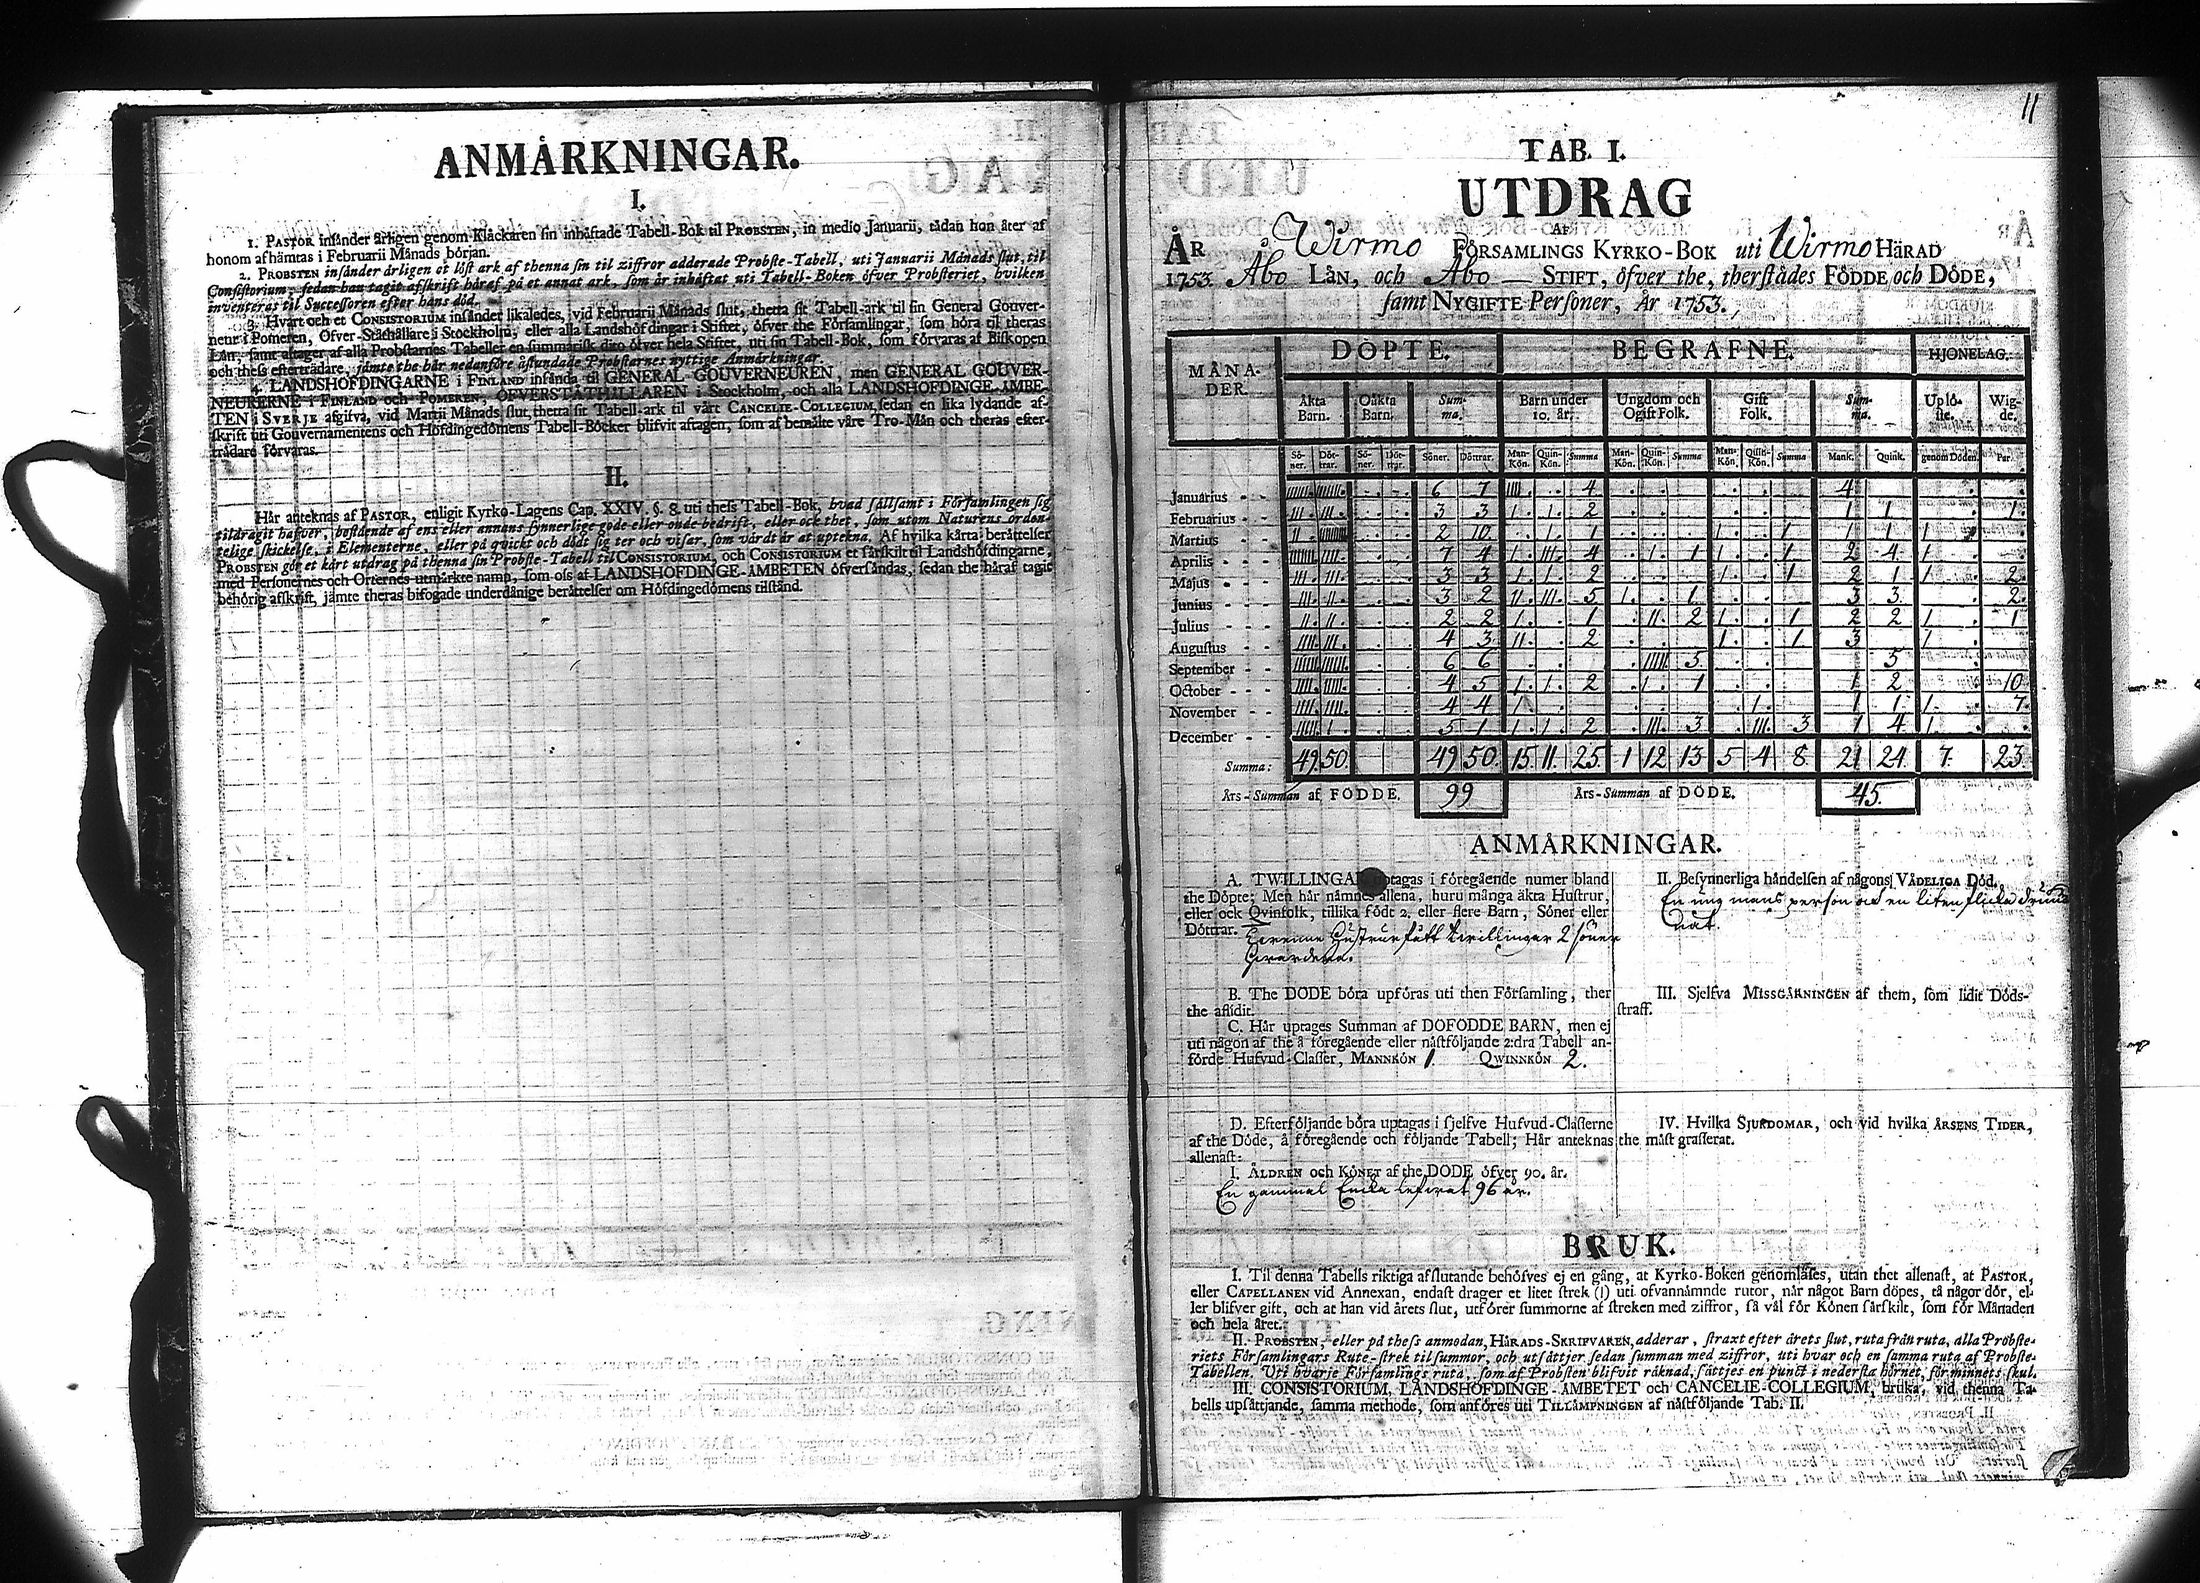 ANMÅRKNINGAR.
I.
1. PASTOR insånder årligen genom Klåckaren sin inhåftade Tabell-Bok til PROBSTEN, in medio Januarii, tådan hon åter af
honom afhåmtas i Februarii Månads början.
2. PROBSTEN insånder årligen et löst ark af thenna sin til ziffror adderade Probste-Tabell, uti Januarii Månads slut, til
Consistorium; sedan han tagit afskrift håraf på et annat ark, som år inhåftat uti Tabell-Boken öfver Probsteriet, hvilken
inventeras til Successoren efter hans död.
3. Hvart och et CONSISTORIUM insånder likaledes, vid Februarii Månads slut, thetta sit Tabell-ark til sin General Gouver-
neur i Pomeren, Öfver-Ståthållare i Stockholm, eller alla Landshöfdingar i Stiftet, öfver the Församlingar, som höra til theras
Lån, samt aftager af alla Probstarnes Tabeller en summarisk dito öfver hela Stiftet, uti sin Tabell-Bok, som förvaras af Biskopen
och thess efterträdare, jämte the hår nedanföre åstundade Probstarnes nyttige Anmärkningar.
4. LANDSHÖFDINGARNE i FINLAND insånda til GENERAL-GOUVERNEUREN, men GENERAL GOUVER-
NEURERNE i FINLAND och POMEREN, ÖFVERSTÅTHÅLLAREN i Stockholm, och alla LANDSHÖFDINGE-ÅMBE-
TEN i SVERJE afgifva, vid Martii Månads slut, thetta sit Tabell-ark til vårt CANCELIE-COLLEGIUM, sedan en lika lydande af-
skrift uti Gouvernamentens och Höfdingedömens Tabell-Böcker blifvit aftagen, som af bemålte våre Tro-Mån och theras efter-
trådare förvaras.
II.
Hår anteknas af PASTOR, enligit Kyrko-Lagens Cap. XXIV. §. 8. uti thess Tabell-Bok, hvad sållsamt i Församlingen sig
tildragit hafver, bestående af ens eller annars synnerlige gode eller onde bedrift, eller ock thet, som utom Naturens orden-
telige skickelse, i Elementerne, eller på quickt och dödt sig ter och visar, som vårdt år at uptekna. Af hvilka kårta beråttelser
PROBSTEN gör et kårt utdrag på thenna sin Probste-Tabell til CONSISTORIUM, och CONSISTORIUM et sårskilt til Landshöfdingarne,
med Personernes och Orternes utmårkte namn, som oss af LANDSHÖFDINGE-ÅMBETEN öfversåndas, sedan the håraf tagit
behörig afskrift, jämte theras bifogade underdånige beråttelser om Höfdingedömens tilstånd.
11
TAB. I.
UTDRAG
AF
ÅR Wirmo FÖRSAMLINGS KYRKO-BOK uti Wirmo HÄRAD
1753. Åbo LÅN, och Åbo STIFT, öfver the, therstådes FÖDDE och DÖDE,
samt NYGIFTE Personer, År 1753.
MÅNADER. DÖPTE. BEGRAFNE. HJONELAG.
Åkta Barn. Oåkta Barn. Summa. Barn under 10. år. Ungdom och Ogift Folk. Gift Folk. Summa. Uplöste. Wigde.
Söner. Döttrar. Söner. Döttrar. Söner. Döttrar. Man-Kön. Quin-Kön. Summa Man-Kön. Quin-Kön. Summa Man-Kön. Quin-Kön. Summa Mank. Quink. genom Döden. Par.
Januarius - - 6 7 4 4
Februarius - - 3 3 1. 1. 2 1 1 1
Martius - - 2 10 1. 1 1 1 1 1 1
Aprilis - - 7 4 1. III. 4 1 1 1. 1 2 4 1
Majus - - 3 3 1. 1. 2 1. 1 2 1 1 2.
Junius - - 3 2 II. III. 5 1. 1 3 3 2.
Julius - - 2 2 1. 1 II. 2 1. 1 2 2 1 1
Augustus - - 4 3 II. 2 1. 1 3 1
September - - 6 6 5. 5
October - - 4 5 1. 1. 2 1. 1 1 2 10
November - - 4 4 1. 1. 1 1 1. 7.
December - - 5 1 1. 1. 2 III. 3 III. 3 1 4 1.
Summa: 49. 50. 49 50. 15 11. 25. 1 12 13 5 4 8 21 24. 7. 23.
Års-Summan af FÖDDE. 99 Års-Summan af DÖDE. 45.
ANMÅRKNINGAR.
A. TWILLINGAR uptagas i föregående numer bland
the Döpte; Men hår nåmnes allena, huru många åkta Hustrur,
eller ock Qvinfolk, tillika födt 2. eller flere Barn, Söner eller
Döttrar.
Hustrur fådt twillingar 2 söner
B. The DÖDE böra upföras uti then Församling, ther
the aflidit.
C. Hår uptages Summan af DÖFÖDDE BARN, men ej
uti någon af the å föregående eller nåstföljande 2:dra Tabell an-
förde Hufvud-Classer, MANNKÖN 1. QWINNKÖN 2.
D. Efterföljande böra uptagas i sjelfve Hufvud-Classerne
af the Döde, å föregående och följande Tabell; Hår anteknas
allenast:
I. ÅLDREN och KÖNET af the DÖDE öfver 90. år.
En gammal Enka lefwat 96 år.
II. Besynnerliga håndelsen af någons VÅDELIGA Död.
En ung mans person och en liten flicka drunk-
nat.
III. Sjelfva MISSGÄRNINGEN af them, som lidit Döds-
straff.
IV. Hvilka SJUKDOMAR, och vid hvilka ÅRSENS TIDER,
the måst grasserat.
BRUK.
I. Til denna Tabells riktiga afslutande behöfves ej en gång, at Kyrko-Boken genomläses, utan thet allenast, at PASTOR,
eller CAPELLANEN vid Annexan, endast drager et litet strek (I) uti ofvannåmnde rutor, når något Barn döpes, tå någor dör, el-
ler blifver gift, och at han vid årets slut, utförer summorne af streken med ziffror, så vål för Könen sårskilt, som för Månaden
och hela året.
II. PROBSTEN, eller på thess anmodan, HÄRADS-SKRIFVAREN, adderar, straxt efter årets slut, ruta från ruta, alla Probste-
riets Församlingars Rute-strek til summor, och utsåttjer sedan summan med ziffror, uti hvar och en samma ruta af Probste-
Tabellen. Uti hvarje Församlings ruta, som af Probsten blifvit råknad, såttjes en punct i nedersta hörnet, för minnets skul.
III. CONSISTORIUM, LANDSHÖFDINGE-ÅMBETET och CANCELIE-COLLEGIUM, bruka, vid thenna Ta-
bells upsåttjande, samma methode, som anföres uti TILLÅMPNINGEN af nåstföljande Tab. II.